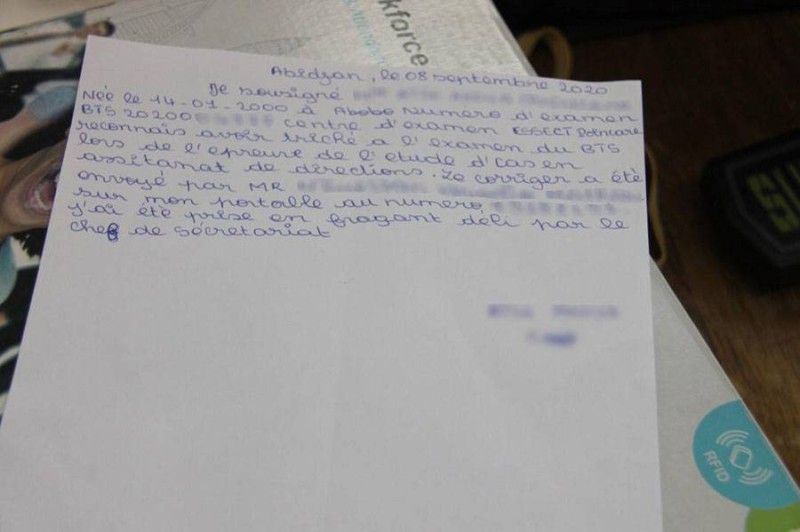 kforce
Abidjan, le 08 septembre 2020
Je sousigné
Née le 14-01-2000 à Abobo Numero d'examen
BTS 20200 centre d'examen ESSECT Poincare
reconnais avoir triché a l'examen du BTS
lors de l'epreuve de l'etude d'cas en
assitanat de directions. Le corriger a été
envoyé par MR
sur mon portalle au numero
j'ai été prise en fragant déli par le
chef de sécretariat
RFID